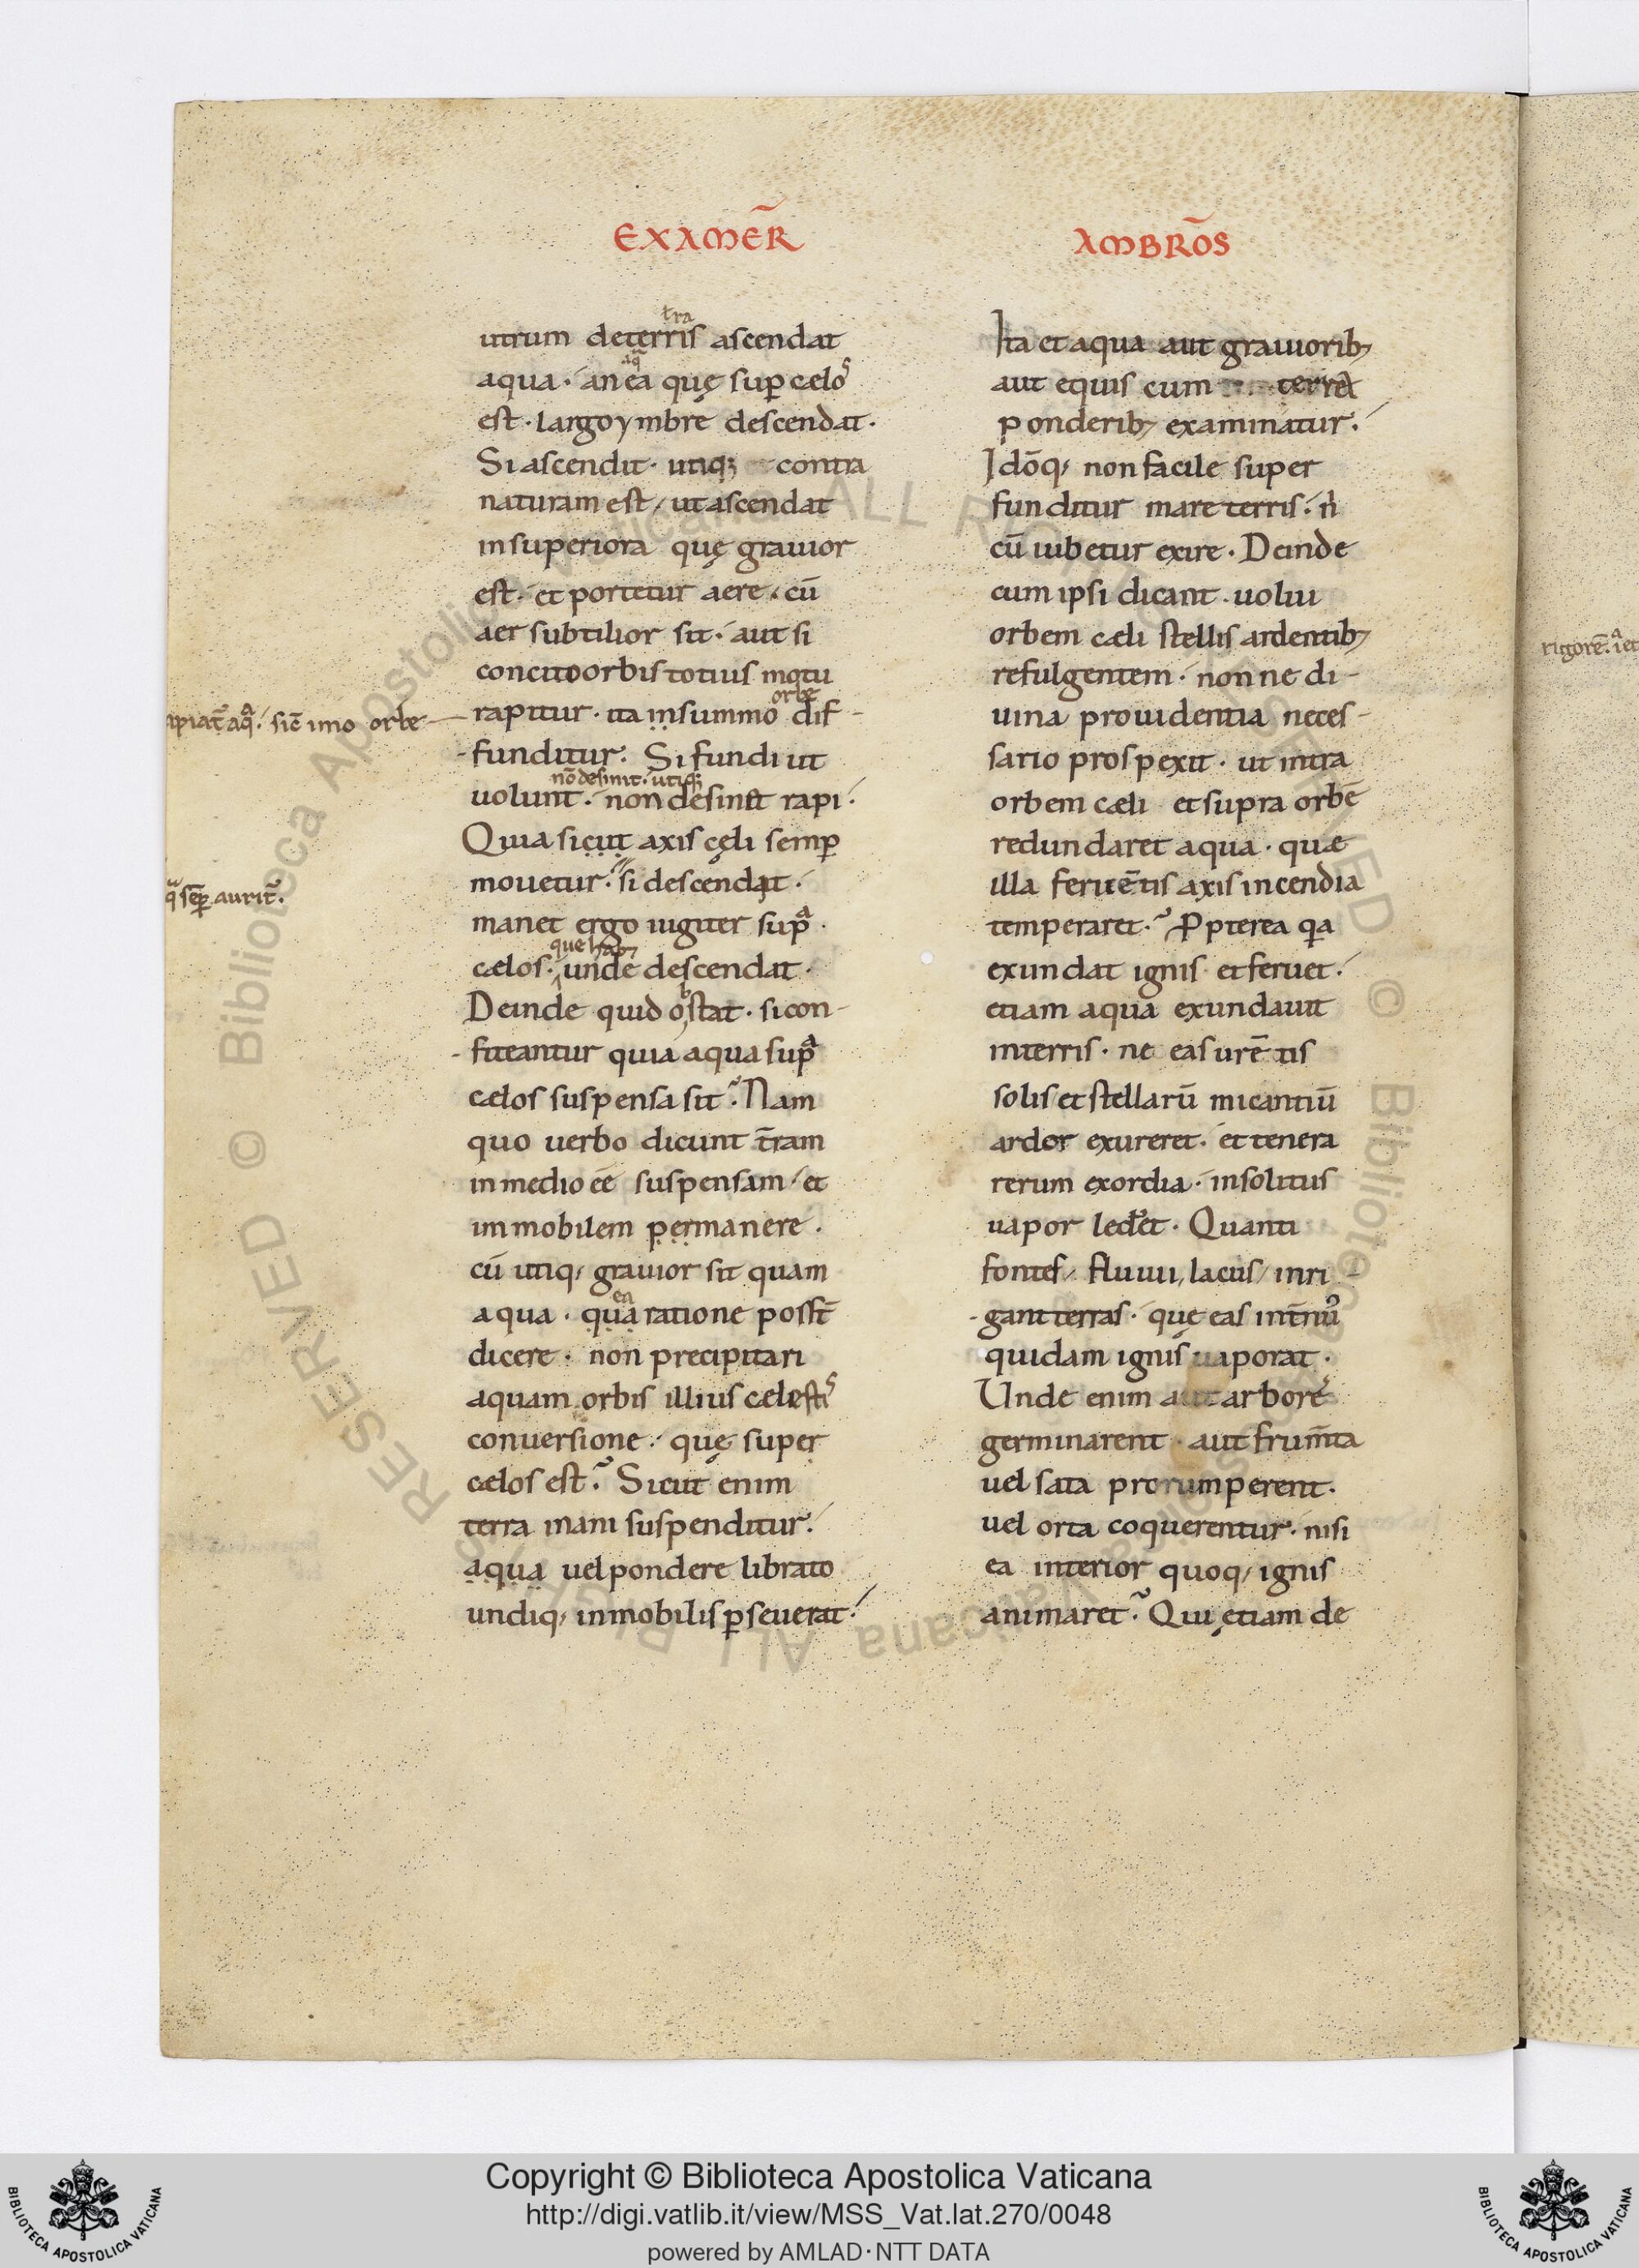 EXAMER̃
tra
utrum deterris ascendat
aq̃
aqua · an ea quę sup̱ cęlos
est · largo ymbre descendat ·
Si ascendit · utiq; contra
naturam est / ut ascendat
insuperiora quę grauior
est · et portetur aere · cū
aer subtilior sit · aut si
concito orbis totius motu
orbe
rapitur · ita insummo dif-
apiat̃ aq̃ · sic̄ imo orbe
-funditur. Si fundi ut
nō desinit · utiq;
uolunt · non desinit rapi ·
Quia sicut axis cęli semp̱
mouetur · si descendat ·
q̃ sēp̱ aurit̃ ·
manet ergo iugiter sup̱ª
que hab;
cælos · unde descendat ·
Deinde quid obstat · si con-
-fiteantur quia aqua sup̱ª
cælos suspensa sit ? Nam
quo uerbo dicunt t̄ram
in medio ēē suspensam / et
immobilem permanere ·
cū utiq; grauior sit quam
ea
aqua · qua ratione posst̄
dicere · non precipitari
aquam orbis illius cælestis
conuersione · quę super
cælos est ? Sicut enim
terra inani suspenditur ·
aqua uel pondere librato
undiq; inmobilis p̱seuerat ·
AMBROS̃
Ita et aqua aut grauiorib;
aut equis cum terra
ponderib; examinatur ·
Idōq; non facile super
funditur mare terris · ń
cū iubetur exire · Deinde
cum ipsi dicant · uolui
orbem cæli stellis ardentib;
refulgentem · nonne di-
uina prouidentia neces-
sario prospexit · ut intra
orbem cæli et supra orbē
redundaret aqua · quæ
illa feruētis axis incendia
temperaret ? Ꝓpterea qa
exundat ignis et feruet ·
etiam aqua exundauit
interris · ne eas urētis
solis et stellarū micantiū
ardor exureret · et tenera
rerum exordia · insolitus
uapor led̄et · Quanti
fontes / fluuii, lacus / inri-
-gant terras · quę eas int̄nus
quidam ignis uaporat ·
Unde enim aut arbores
germinarent · aut frum̄ta
uel sata prorumperent ·
uel orta coquerentur · nisi
ea interior quoq; ignis
animaret ? Qui etiam de
rigorē · iet
Copyright © Biblioteca Apostolica Vaticana
http://digi.vatlib.it/view/MSS_Vat.lat.270/0048
powered by AMLAD·NTT DATA
BIBLIOTECA APOSTOLICA VATICANA
BIBLIOTECA APOSTOLICA VATICANA